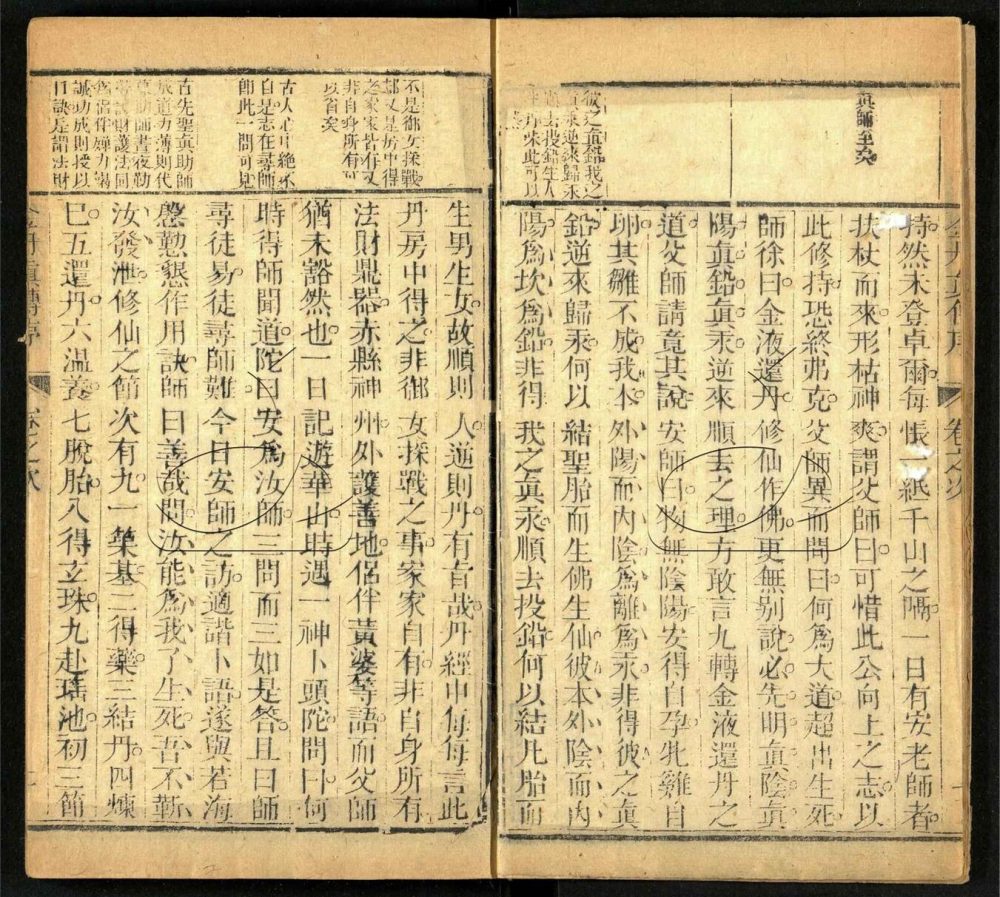 眞師至矣
彼之眞鉛我之
眞汞逆來歸汞
順去投鉛生人
持然未登卓爾每悵一紙千山之隔一日有安老師者
扶杖而來形枯神爽謂父師曰可惜此公向上之志以
此修持恐終弗克父師異而問曰何爲大道超出生死
師徐曰金液還丹修仙作佛更無別說必先明眞陰眞
陽眞鉛眞汞逆來順去之理方敢言九轉金液還丹之
道父師請竟其說安師曰物無陰陽安得自孕牝雞自
卵其雛不成我本外陽而內陰爲離爲汞非得彼之眞
鉛逆來歸汞何以結聖胎而生佛生仙彼本外陰而內
陽爲坎爲鉛非得我之眞汞順去投鉛何以結凡胎而
金丹眞傳序
卷之次
不是御女採戰
却又是房中得
之家家皆有又
非自身所有可
以省矣
古人心中絶不
自是志在尋師
卽此一問可見
古先聖眞助師
成道功薄則代
晝夜勤
財護法同
爲侶伴殫力竭
誠功成則授以
口訣是謂法財
生男生女故順則人逆則丹有旨哉丹經中每每言此
丹房中得之非御女採戰之事家家自有非自身所有
法財鼎器赤縣神州外護善地侶伴黃婆等語而父師
猶未豁然也一日記遊華山時遇一神卜頭陀問曰何
時得師聞道陀曰安爲汝師三問而三如是答且曰師
尋徒易徒尋師難今日安師之訪適諧卜語遂與若海
慇懃懇作用訣師曰善哉問汝能爲我了生死吾不靳
汝發泄修仙之節次有九一築基二得藥三結丹四煉
巳五還丹六溫養七脫胎八得玄珠九赴瑤池初三節
金丹眞傳序
卷之次